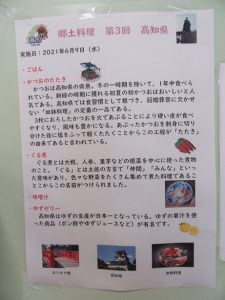 郷土料理 第3回 高知県
実施日：2021年6月9日（水）
・ごはん
・かつおのたたき
かつおは高知県の県魚。冬の一時期を除いて、1年中食べら
れている。新緑の時期に獲れる初夏の初かつおはおいしいと人
気である。高知県では食習慣として根づき、冠婚葬祭に欠かせ
ない「皿鉢料理」の定番の一品である。
3枚におろしたかつおを火であぶることにより硬い皮が食べ
やすくなり、風味も豊かになる。あぶったかつおを刺身に切り
分けた後に塩をふって軽くたたくことからこの工程が「たたき」
の由来であると言われている。
・ぐる煮
ぐる煮とは大根、人参、里芋などの根菜を中心に使った煮物
のこと。「ぐる」とは土佐の方言で「仲間」「みんな」といっ
た意味があり、色々な野菜をたくさん集めて煮た料理であるこ
とからこの名前がつけられました。
・味噌汁
・ゆずゼリー
高知県はゆずの生産が日本一となっている。ゆずの果汁を使
った商品（ポン酢やゆずジュースなど）が有名です。
はりまや橋
高知城
皿鉢料理